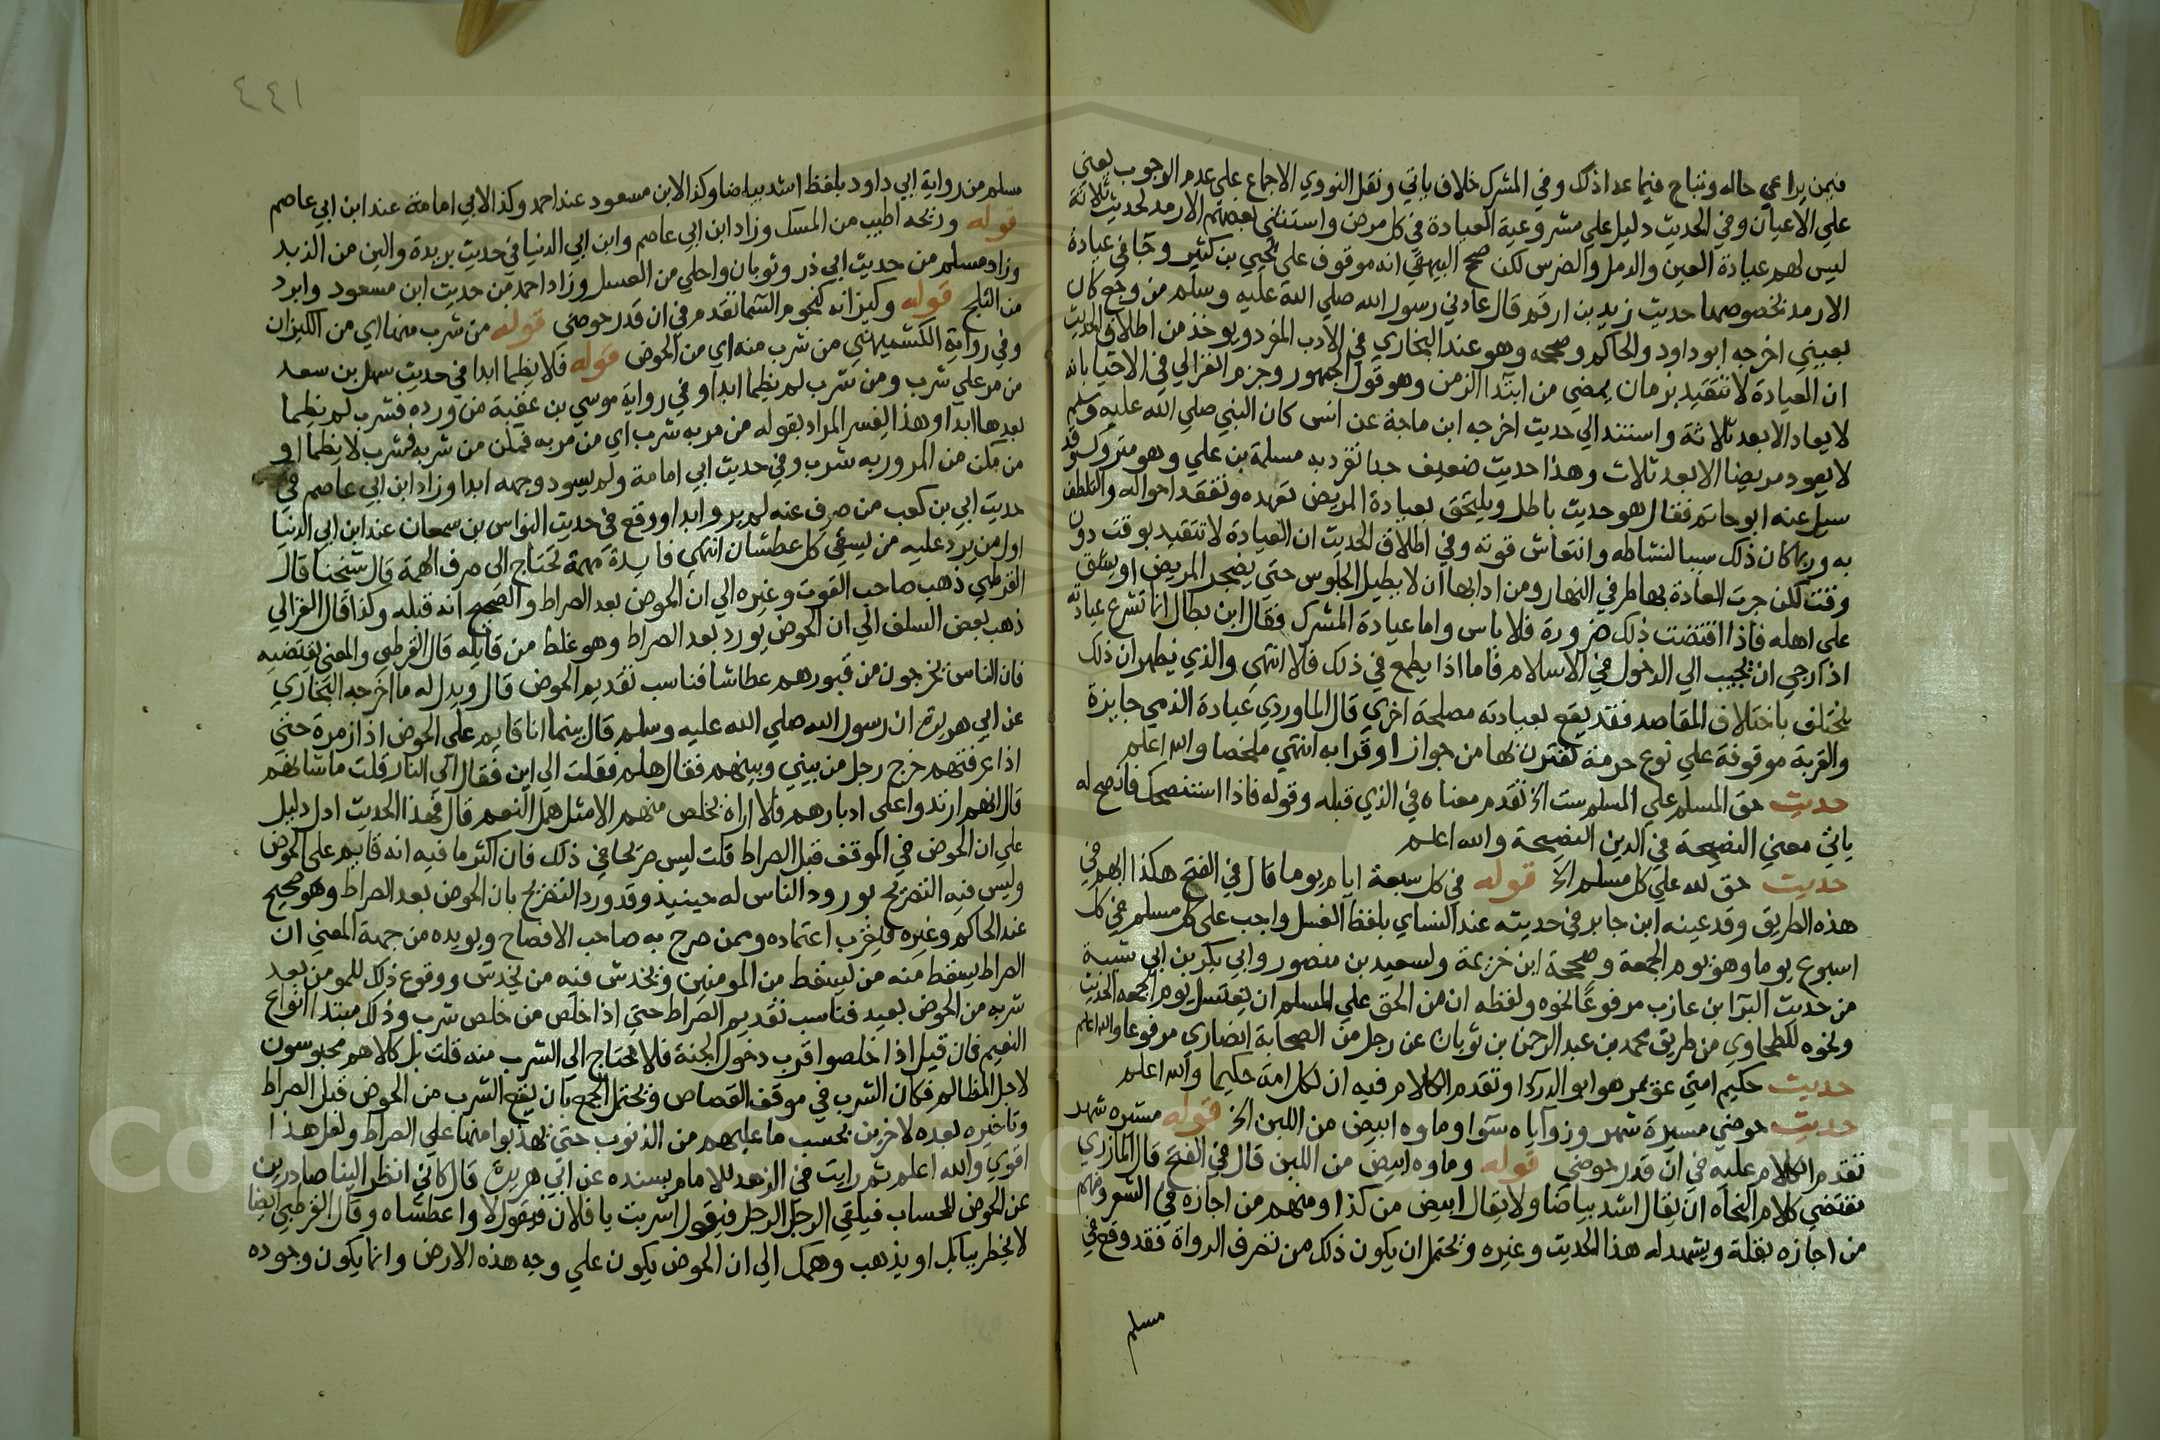 فيمن يراعي حاله وتباح فيما عدا ذلك وفي المشرك خلاف ياتي ونقل النووي الاجماع علي عدم الوجوب يعني
علي الاعيان وفي الحديث دليل علي مشروعية العيادة في كل مرض واستثني بعضهم الارمد لحديث ثلاثة
ليس لهم عيادة العين والدمل والضرس لكن صحح البيهقي انه موقوف علي يحيي بن كثير وجا في عيادة
الارمد بخصوصها حديث زيد بن ارقم قال عادني رسول الله صلي الله عليه وسلم من وجع كان
بعيني اخرجه ابو داود والحاكم وصححه وهو عند البخاري في الادب المفرد ويوخذ من اطلاق الحديث
ان العيادة لا تتقيد بزمان يمضي من ابتدا الزمن وهو قول الجمهور وجزم الغزالي في الاحيا بانه
لا يعاد الا بعد ثلاثة واستند الي حديث اخرجه ابن ماجة عن انس كان النبي صلي الله عليه وسلم
لا يعود مريضا الا بعد ثلاث وهذا حديث ضعيف جدا تفرد به مسلمة بن علي وهو متروك وقد
سيل عنه ابو حاتم فقال هو حديث باطل ويلتحق بعيادة المريض تعهده وتفقد احواله والتلطف
به وربما كان ذلك سببا لنشاطه وانتعاش قوته وفي اطلاق الحديث ان العيادة لا تتقيد بوقت دون
وقت لكن جرت العادة بها طرفي النهار ومن ادابها ان لا يطيل الجلوس حتي يضجر المريض او يشق
علي اهله فاذا اقتضت ذلك ضرورة فلا باس واما عيادة المشرك فقال ابن بطال انما تشرع عيادته
اذا رجي ان يجيب الي الدخول في الاسلام فاما اذا يطمع في ذلك فلا انتهي والذي يظهر ان ذلك
يختلف باختلاف المقاصد فقد يقع بعيادته مصلحة اخري قال الماوردي عيادة الذمي جايزة
والقربة موقوفة علي نوع حرمة تقترن بها من جوار او قرابه انتهي ملخصا والله اعلم
حديث حق المسلم علي المسلم ست الخ تقدم معناه في الذي قبله وقوله فاذا استنصحك فانصح له
ياتي معني النصيحة في الدين النصيحة والله اعلم
حديث حق لله علي كل مسلم الخ قوله في كل سبعة ايام يوما قال في الفتح هكذا ابهم في
هذه الطريق وقد عينه ابن جابر في حديثه عند النساي بلفظ الغسل واجب علي كل مسلم في كل
اسبوع يوما وهو يوم الجمعة وصححه ابن خزيمة ولسعيد بن منصور وابي بكر بن ابي شيبة
من حديث البرآ ابن عازب مرفوعا نحوه ولفظه ان من الحق علي المسلم ان يغتسل يوم الجمعه الحديث
ونحوه للطحاوي من طريق محمد بن عبد الرحمن بن ثوبان عن رجل من الصحابة انصاري مرفوعا والله اعلم
حديث حكيم امتي عويمر هو ابو الدردا وتقدم الكلام فيه ان لكل امة حكيما والله اعلم
حديث حوضي مسيرة شهر وزواياه سوا وماوه ابيض من اللبن الخ قوله مسيره شهر
تقدم الكلام عليه في ان قدر حوضي قوله وماوه ابيض من اللبن قال في الفتح قال المازري
تقتضي كلام النحاه ان يقال اشد بياضا ولا يقال ابيض من كذا ومنهم من اجازه في الشعر ومنهم
من اجازه بقلة ويشهد له هذا الحديث وغيره ويحتمل ان يكون ذلك من تصرف الرواة فقد وقع في
مسلم
٤٤١
مسلم من رواية ابي داود بلفظ اشد بياضا وكذا لابن مسعود عند احمد وكذا لابي امامة عند ابن ابي عاصم
قوله وريحه اطيب من المسك وزاد ابن ابي عاصم وابن ابي الدنيا في حديث بريدة والين من الزبد
وزاد مسلم من حديث ابي ذر وثوبان واحلي من العسل وزاد احمد من حديث ابن مسعود وابرد
من الثلج قوله وكيزانه كنجوم السما تقدم في ان قدر حوضي قوله من شرب منها اي من الكيزان
وفي رواية الكشميهني من شرب منه اي من الحوض قوله فلا يظما ابدا في حديث سهل بن سعد
من مر علي شرب ومن شرب لم يظما ابدا وفي رواية موسي بن عقبة من ورده فشرب لم يظما
بعدها ابدا وهذا يفسر المراد بقوله من مر به شرب اي من مر به فمكن من شربه فشرب لا يظما او
من مكن من المرور به شرب وفي حديث ابي امامة ولم يسود وجهه ابدا وزاد ابن ابي عاصم في
حديث ابي بن كعب من صرف عنه لم يرو ابدا ووقع في حديث النواس بن سمعان عند ابن ابي الدنيا
اول من يرد عليه من يسقي كل عطشان انتهي فايدة مهمة تحتاج الي صرف الهمة قال شيخنا قال
القرطبي ذهب صاحب القوت وغيره الي ان الحوض بعد الصراط والصحيح انه قبله وكذا قال الغزالي
ذهب بعض السلف الي ان الحوض يورد بعد الصراط وهو غلط من قايله قال القرطبي والمعني يقتضيه
فان الناس يخرجون من قبورهم عطاشا فناسب تقديم الحوض قال ويدل له ما اخرجه البخاري
عن ابي هريرة ان رسول الله صلي الله عليه وسلم قال بينما انا قايم علي الحوض اذا زمرة حتي
اذا عرفتهم خرج رجل من بيني وبينهم فقال هلم فقلت الي اين فقال الي النار قلت ما شانهم
قال انهم ارتدوا علي ادبارهم فلا اراه يخلص منهم الا مثل همل النعم قال فهذا الحديث ادل دليل
علي ان الحوض في الموقف قبل الصراط قلت ليس صريحا في ذلك فان اكثر ما فيه انه قايم علي الحوض
وليس فيه التصريح بورود الناس له حينيذ وقد ورد التصريح بان الحوض بعد الصراط وهو صحيح
عند الحاكم وغيره اعتماده وممن صرح به صاحب الافصاح ويويده من جهة المعني ان
الصراط يسقط منه من يسقط من المومنين ويخدش فيه من يخدش ووقوع ذلك للمومن بعد
شربه من الحوض بعيد فناسب تقديم الصراط حتي اذا خلص من خلص شرب وذلك مبتدا انواع
النعيم فان قيل اذا خلصوا قرب دخول الجنة فلا يحتاج الي الشرب منه قلت بل كلا هم محبوسون
لاجل المظالم فكان الشرب في موقف القصاص ويحتمل الجمع بان يقع الشرب من الحوض قبل الصراط
وتاخيره بعده لاخرين بحسب ما عليهم من الذنوب حتي يهذبوا منها علي الصراط ولعل هذا
اقوي والله اعلم ثم رايت في الزهد للامام بسنده عن ابي هريرة قال كاني انظر الينا صادرين
عن الحوض للحساب فيلقي الرجل الرجل فيقول اشربت يا فلان فيقول لا واعطشاه وقال القرطبي ايضا
لا يخطر ببالك او يذهب وهمك الي ان الحوض يكون علي وجه هذه الارض وانما يكون وجوده